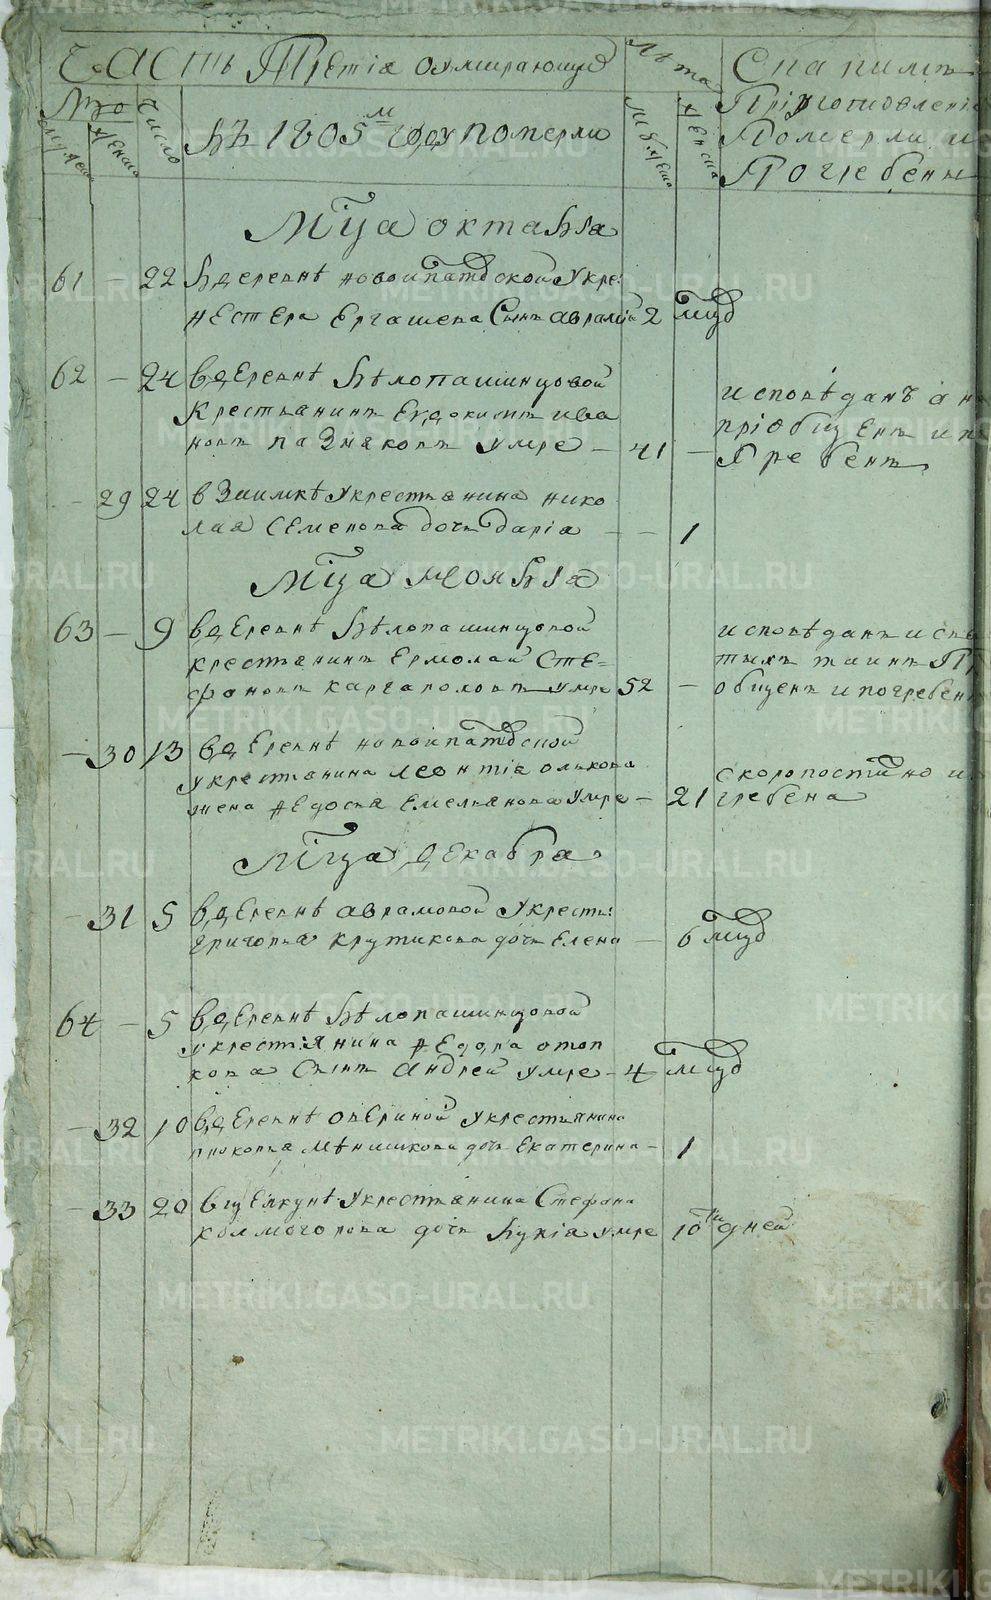 Часть Третіа оумирающие
лѣта
Спакимъ
№ро
Число
Въ 1805м году померли
Пріуготовленіе
Померли и
Погребены
мужеска
женска
мужеска
женска
Мца октабіа
61 – 22 Вдеревнѣ новоипатовской у кре:
нестера Ергашева Сынъ авраамій 2 мцд
62 – 24 вдеревнѣ бѣлопашинцовой
крестьанинъ Евдокимъ ива
новъ казнаковъ умре – 41 –
исповѣданъ и
пріобщенъ и по
гребенъ
– 29 24 в Заимкѣ у крестьанина нико
лаа Семенова дочь даріа – – 1
Мца ноябріа
63 – 9 вдеревнѣ бѣлопашинцовой
крестьанинъ Ермолай Сте=
фановъ каргаполовъ умре 52 –
исповѣданъ и свя
тыхъ таинъ пр
общенъ и погребен
– 30 13 вдеревнѣ новоипатовской
у крестьанина леонтіа
жена федосіа емельанова умре – 21
скоропостижно и
гребена
Мца декабра
– 31 5 вдеревнѣ аврамовой у кресть:
григорьа крутикова дочь елена – 6 мцд
64 – 5 вдеревнѣ бѣлопашинцовой
у крестіянина федора
Сынъ андрей умре – 4 мцд
– 32 10 вдеревнѣ овериной у крестьянина
прокопьа мѣншикова дочь екатерина – 1
– 33 20 вщелкунѣ у крестьанина Стефана
колмогорова дочь лукіа умре 10ти дней
METRIKI.GASO-URAL.RU